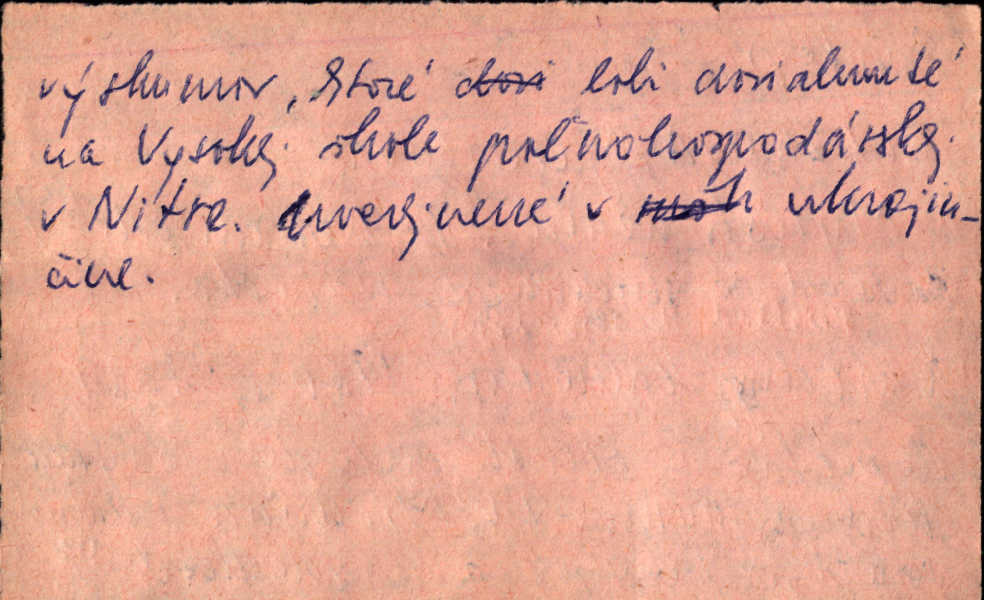 výskumov, ktoré boli dosiahnuté
na Vysokej škole poľnohospodárskej
v Nitre. uverejnené v ukrajin-
čine.